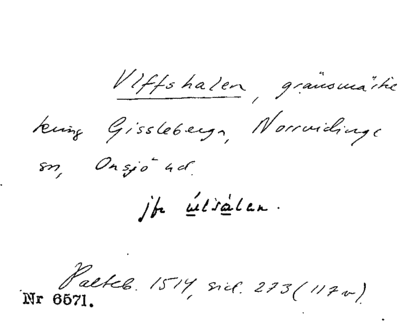 Vlffshalen, gränsmärke
kring Gissleberga, Norrvidinge
sn, Onsjö hd.
jfr úlsàlan.
Palteb. 1514, sid. 273 (117v).
Nr 6571.